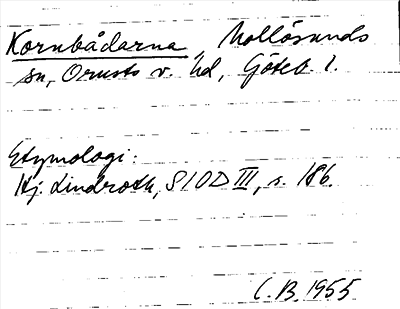 Kornbådarna, Mollösunds
sn, Orusts v. hd, Göteb. l.
Etymologi:
Hj. Lindroth, SIOD III, s. 186.
C.B. 1955